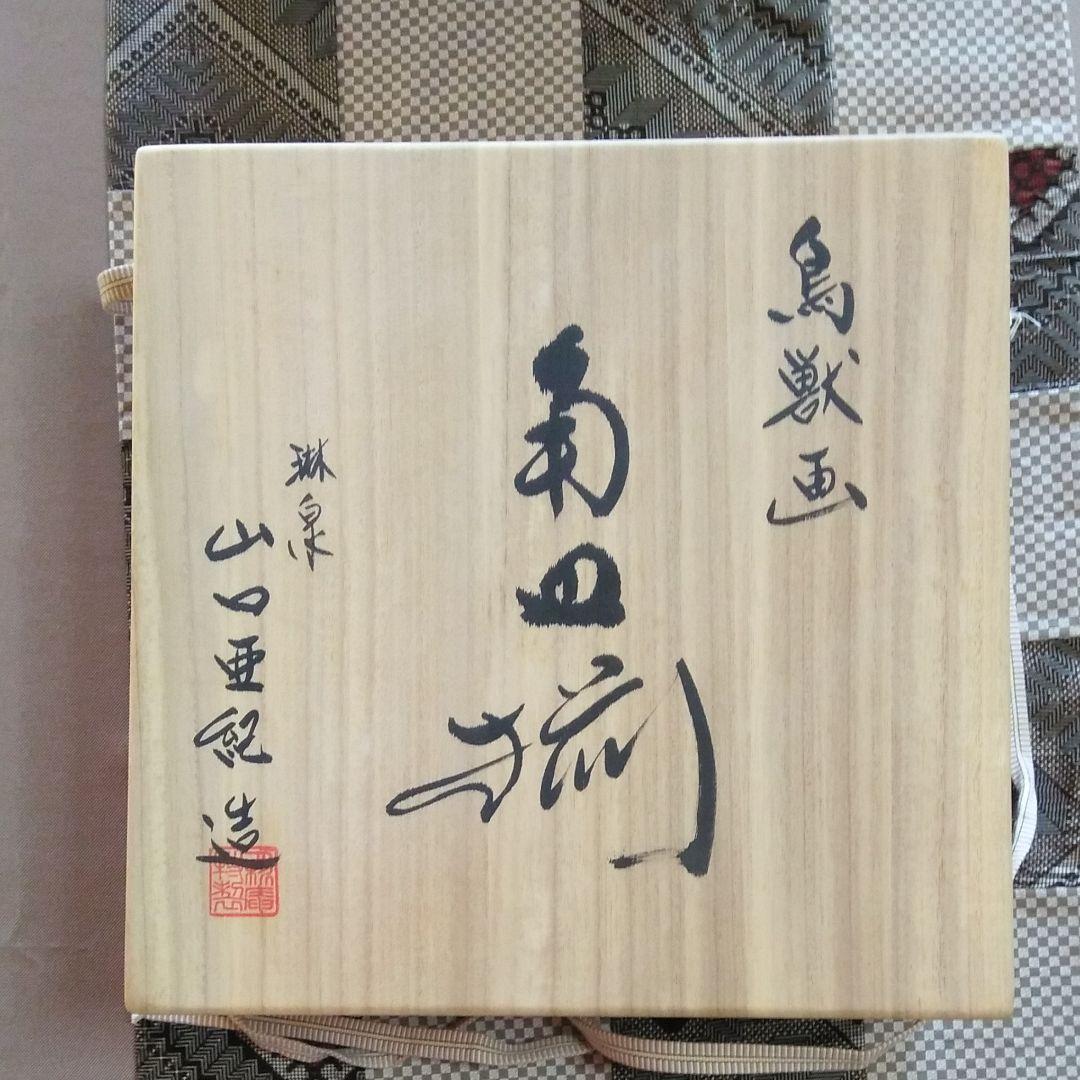 鳥獣画
角皿揃
琳泉
山口亜紀造